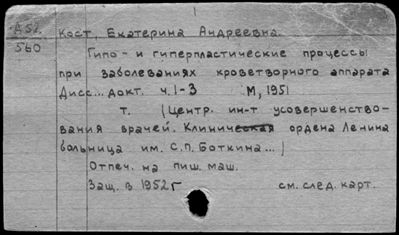 А 51
560
Кост, Екатерина Андреевна.
Гипо- и гиперпластические процессы
при заболеваниях кроветворного аппарата
Дисс... докт. ч.1-3 М, 1951
т. (Центр. ин-т усовершенство-
вания врачей. Клиническая ордена Ленина
больница им. С.П. Боткина...)
Отпеч. на пиш. маш.
Защ. в 1952 г
см. след. карт.